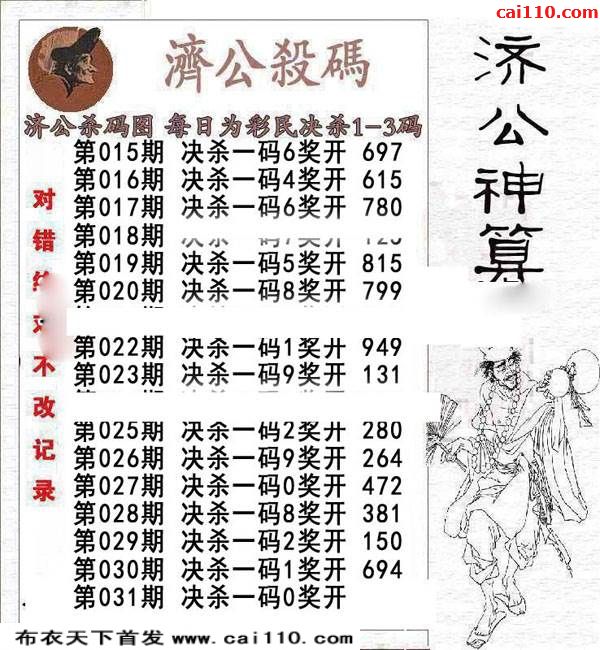 cai110.com
濟公殺碼
济公杀码图 每日为彩民决杀1-3码
第015期 决杀一码6奖开 697
第016期 决杀一码4奖开 615
第017期 决杀一码6奖开 780
第018期
第019期 决杀一码5奖开 815
第020期 决杀一码8奖开 799
第022期 决杀一码1奖开 949
第023期 决杀一码9奖开 131
第025期 决杀一码2奖开 280
第026期 决杀一码9奖开 264
第027期 决杀一码0奖开 472
第028期 决杀一码8奖开 381
第029期 决杀一码2奖开 150
第030期 决杀一码1奖开 694
第031期 决杀一码0奖开
对错
不改记录
济公神算
布衣天下首发 www.cai110.com